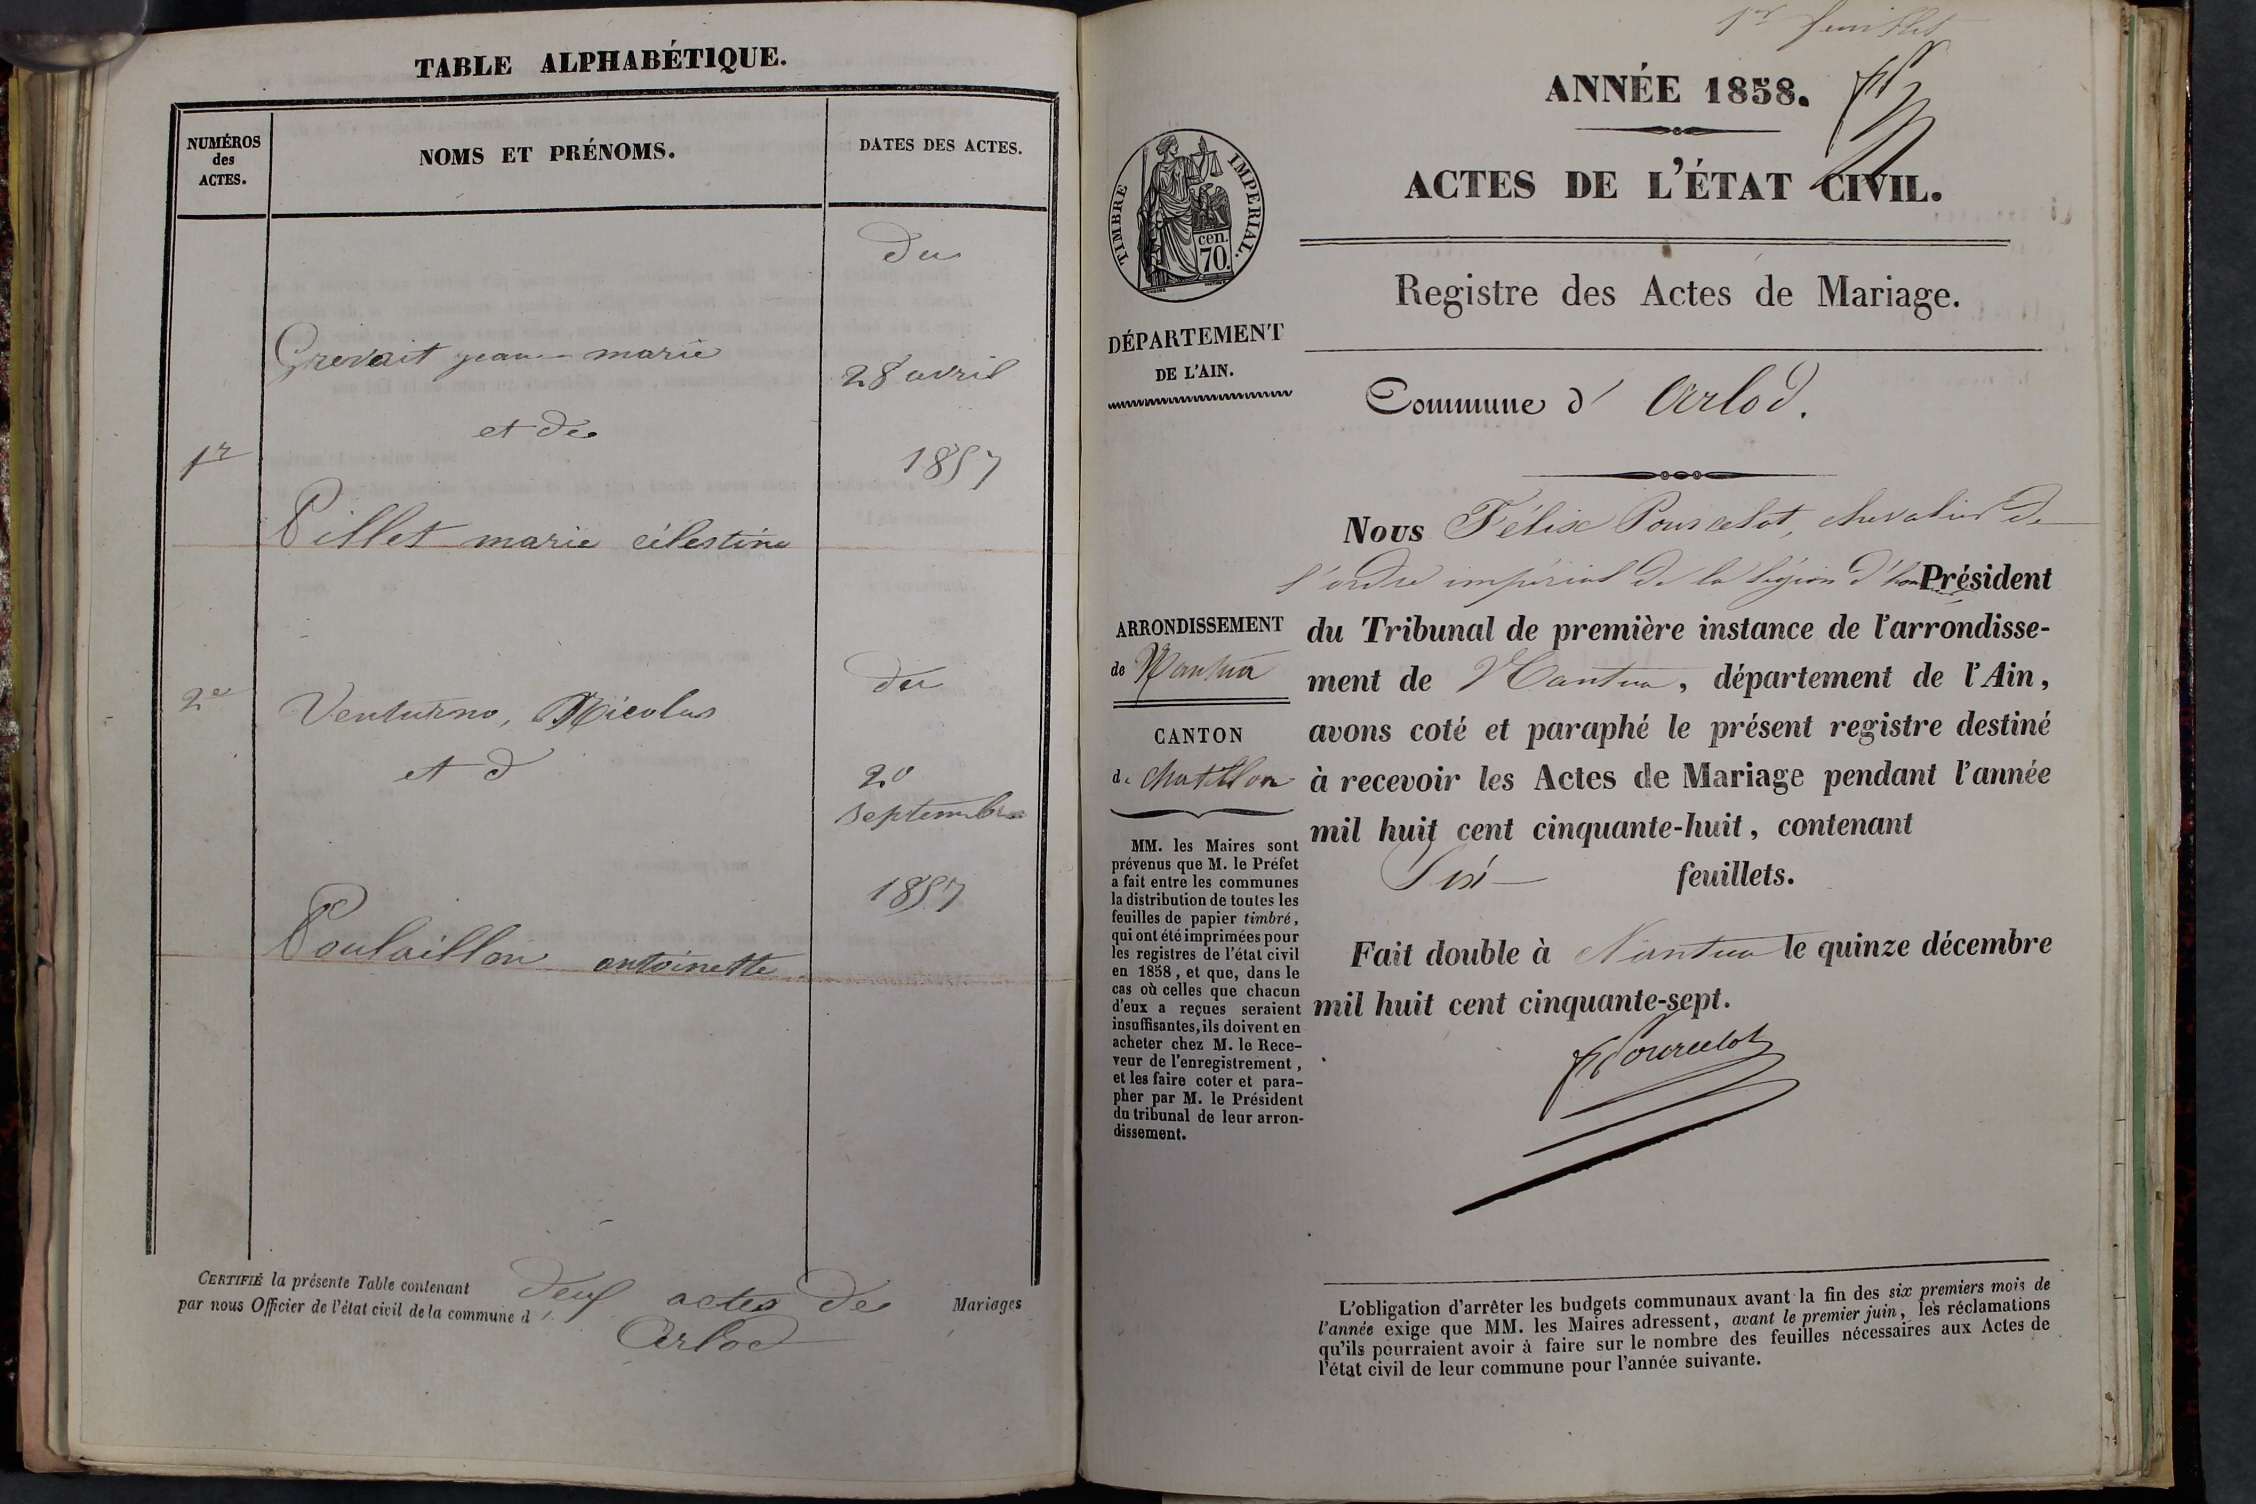 TABLE ALPHABÉTIQUE.
NUMÉROS
des
ACTES.
NOMS ET PRÉNOMS.
DATES DES ACTES.
du
Grevait jean-marie
28 avril
et de
1r
1857
Pillet marie célestine
2e
Venturno, Nicolas
du
et d
20
septembre
1857
Poulaillon antoinette
CERTIFIÉ la présente Table contenant deux actes de Mariages
par nous Officier de l'état civil de la commune d'
Arlod
1er feuillet
ANNÉE 1858.
ACTES DE L'ÉTAT CIVIL.
TIMBRE IMPERIAL.
cen.
70.
Registre des Actes de Mariage.
DÉPARTEMENT
DE L'AIN.
Commune d' Arlod.
Nous Félix Pourcelot, chevalier de
l'ordre impérial de la légion d'hon Président
du Tribunal de première instance de l'arrondisse-
ment de Nantua, département de l'Ain,
avons coté et paraphé le présent registre destiné
à recevoir les Actes de Mariage pendant l'année
mil huit cent cinquante-huit, contenant
Six feuillets.
Fait double à Nantua le quinze décembre
mil huit cent cinquante-sept.
FPourcelot
ARRONDISSEMENT
de Nantua
CANTON
de Chatillon
MM. les Maires sont
prévenus que M. le Préfet
a fait entre les communes
la distribution de toutes les
feuilles de papier timbré,
qui ont été imprimées pour
les registres de l'état civil
en 1858, et que, dans le
cas où celles que chacun
d'eux a reçues seraient
insuffisantes, ils doivent en
acheter chez M. le Rece-
veur de l'enregistrement,
et les faire coter et para-
pher par M. le Président
du tribunal de leur arron-
dissement.
L'obligation d'arrêter les budgets communaux avant la fin des six premiers mois de
l'année exige que MM. les Maires adressent, avant le premier juin, les réclamations
qu'ils pourraient avoir à faire sur le nombre des feuilles nécessaires aux Actes de
l'état civil de leur commune pour l'année suivante.